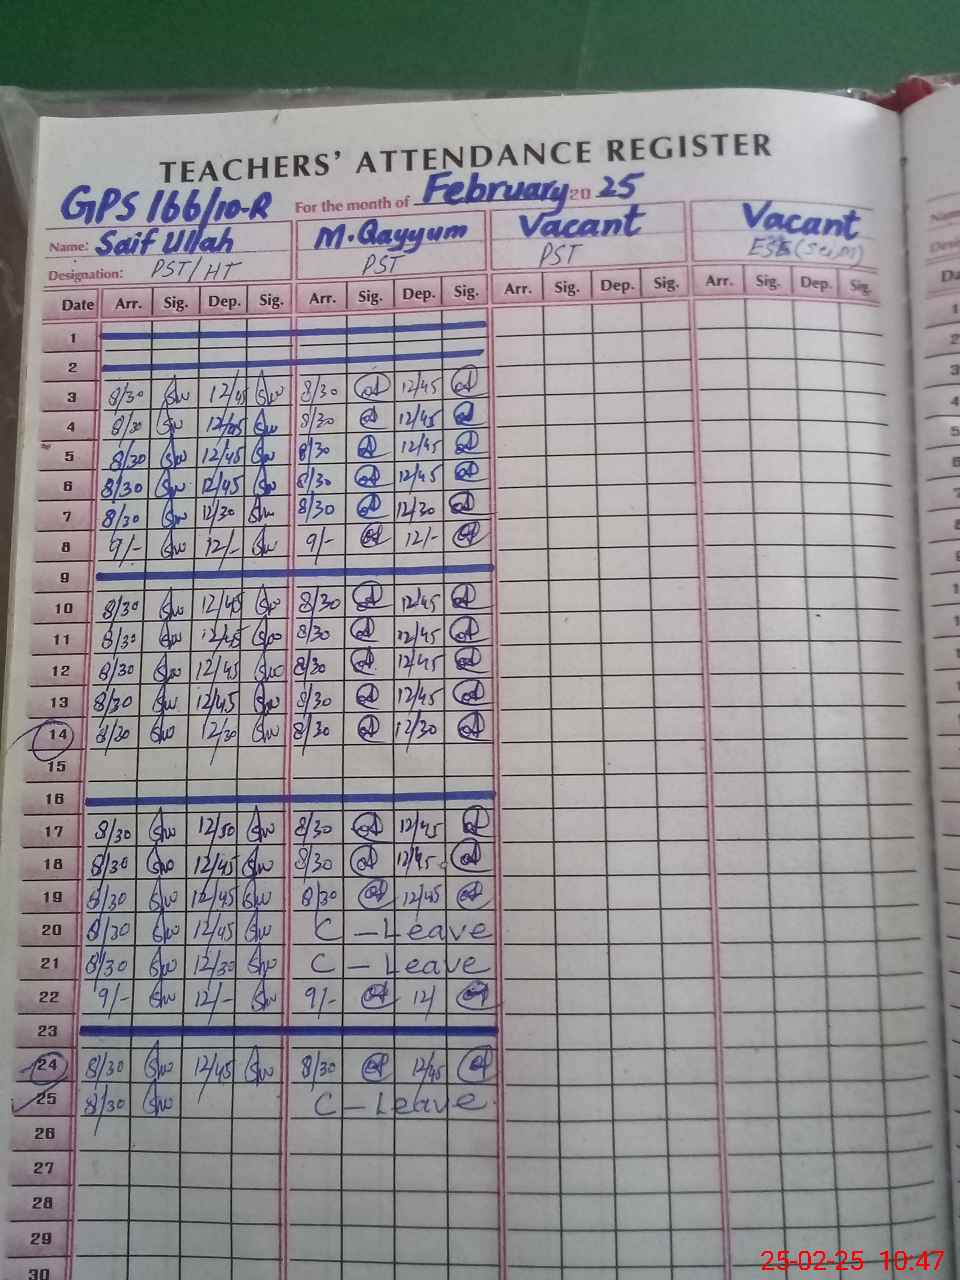 TEACHERS' ATTENDANCE REGISTER
GPS 166/10-R For the month of February 20 25
Name: Saif Ullah M. Qayyum Vacant Vacant
Designation: PST/HT PST PST
Date Arr. Sig. Dep. Sig. Arr. Sig. Dep. Sig. Arr. Sig. Dep. Sig. Arr. Sig. Dep. Sig.
1
2
3 8/30 12/45 8/30 12/45
4 8/30 12/45 8/30 12/45
5 8/30 12/45 8/30 12/45
6 8/30 12/45 8/30 12/45
7 8/30 12/30 8/30 12/30
8 9/- 12/- 9/- 12/-
9
10 8/30 12/45 8/30 12/45
11 8/30 12/45 8/30 12/45
12 8/30 12/45 8/30 12/45
13 8/30 12/45 8/30 12/45
14 8/30 12/30 8/30 12/30
15
16
17 8/30 12/50 8/30 12/45
18 8/30 12/45 8/30 12/45
19 8/30 12/45 8/30 12/45
20 8/30 12/45 C - Leave
21 8/30 12/30 C - Leave
22 9/- 12/- 9/- 12/
23
24 8/30 12/45 8/30 12/45
25 8/30 C - Leave
26
27
28
29
30
25-02-25 10:47